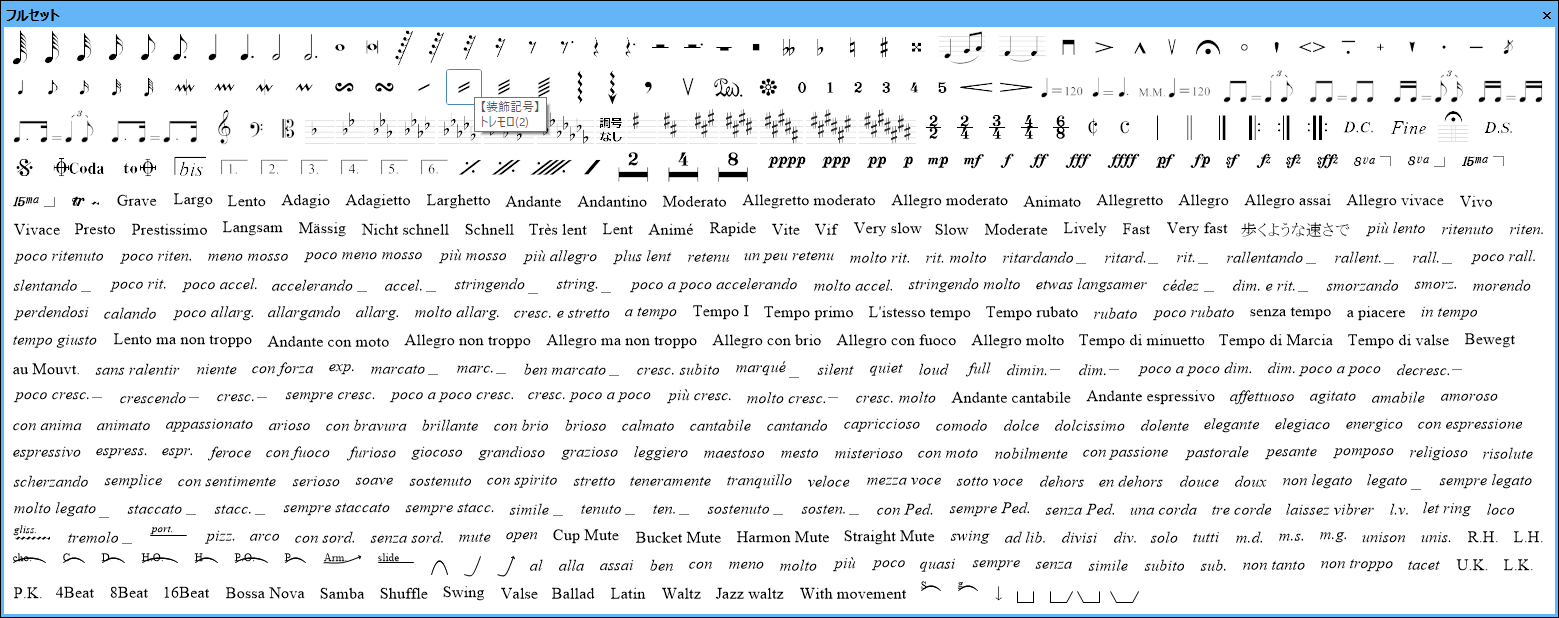 フルセット ×
0 1 2 3 4 5 =120 = . M.M. =120 = 3 = =3 =
【装飾記号】
トレモロ(2)
= 3 = 調号 2/2 2/4 3/4 4/4 6/8 D.C. Fine D.S.
なし
Coda to bis 1. 2. 3. 4. 5. 6. 2 4 8 pppp ppp pp p mp mf f ff fff ffff pf fp sf fz sfz sffz 8va 8va 15ma
15ma tr Grave Largo Lento Adagio Adagietto Larghetto Andante Andantino Moderato Allegretto moderato Allegro moderato Animato Allegretto Allegro Allegro assai Allegro vivace Vivo
Vivace Presto Prestissimo Langsam Mässig Nicht schnell Schnell Très lent Lent Animé Rapide Vite Vif Very slow Slow Moderate Lively Fast Very fast 歩くような速さで più lento ritenuto riten.
poco ritenuto poco riten. meno mosso poco meno mosso più mosso più allegro plus lent retenu un peu retenu molto rit. rit. molto ritardando _ ritard. _ rit. _ rallentando _ rallent. _ rall. _ poco rall.
slentando _ poco rit. poco accel. accelerando _ accel. _ stringendo _ string. _ poco a poco accelerando molto accel. stringendo molto etwas langsamer cédez _ dim. e rit. _ smorzando smorz. morendo
perdendosi calando poco allarg. allargando allarg. molto allarg. cresc. e stretto a tempo Tempo I Tempo primo L'istesso tempo Tempo rubato rubato poco rubato senza tempo a piacere in tempo
tempo giusto Lento ma non troppo Andante con moto Allegro non troppo Allegro ma non troppo Allegro con brio Allegro con fuoco Allegro molto Tempo di minuetto Tempo di Marcia Tempo di valse Bewegt
au Mouvt. sans ralentir niente con forza exp. marcato _ marc. _ ben marcato _ cresc. subito marqué _ silent quiet loud full dimin. – dim. – poco a poco dim. dim. poco a poco decresc. –
poco cresc. – crescendo – cresc. – sempre cresc. poco a poco cresc. cresc. poco a poco più cresc. molto cresc. – cresc. molto Andante cantabile Andante espressivo affettuoso agitato amabile amoroso
con anima animato appassionato arioso con bravura brillante con brio brioso calmato cantabile cantando capriccioso comodo dolce dolcissimo dolente elegante elegiaco energico con espressione
espressivo espress. espr. feroce con fuoco furioso giocoso grandioso grazioso leggiero maestoso mesto misterioso con moto nobilmente con passione pastorale pesante pomposo religioso risolute
scherzando semplice con sentimente serioso soave sostenuto con spirito stretto teneramente tranquillo veloce mezza voce sotto voce dehors en dehors douce doux non legato legato _ sempre legato
molto legato _ staccato _ stacc. _ sempre staccato sempre stacc. simile _ tenuto _ ten. _ sostenuto _ sosten. _ con Ped. sempre Ped. senza Ped. una corda tre corde laissez vibrer l.v. let ring loco
gliss. tremolo _ port. pizz. arco con sord. senza sord. mute open Cup Mute Bucket Mute Harmon Mute Straight Mute swing ad lib. divisi div. solo tutti m.d. m.s. m.g. unison unis. R.H. L.H.
cho. C D H.O. H P.O. P Arm slide al alla assai ben con meno molto più poco quasi sempre senza simile subito sub. non tanto non troppo tacet U.K. L.K.
P.K. 4Beat 8Beat 16Beat Bossa Nova Samba Shuffle Swing Valse Ballad Latin Waltz Jazz waltz With movement S g